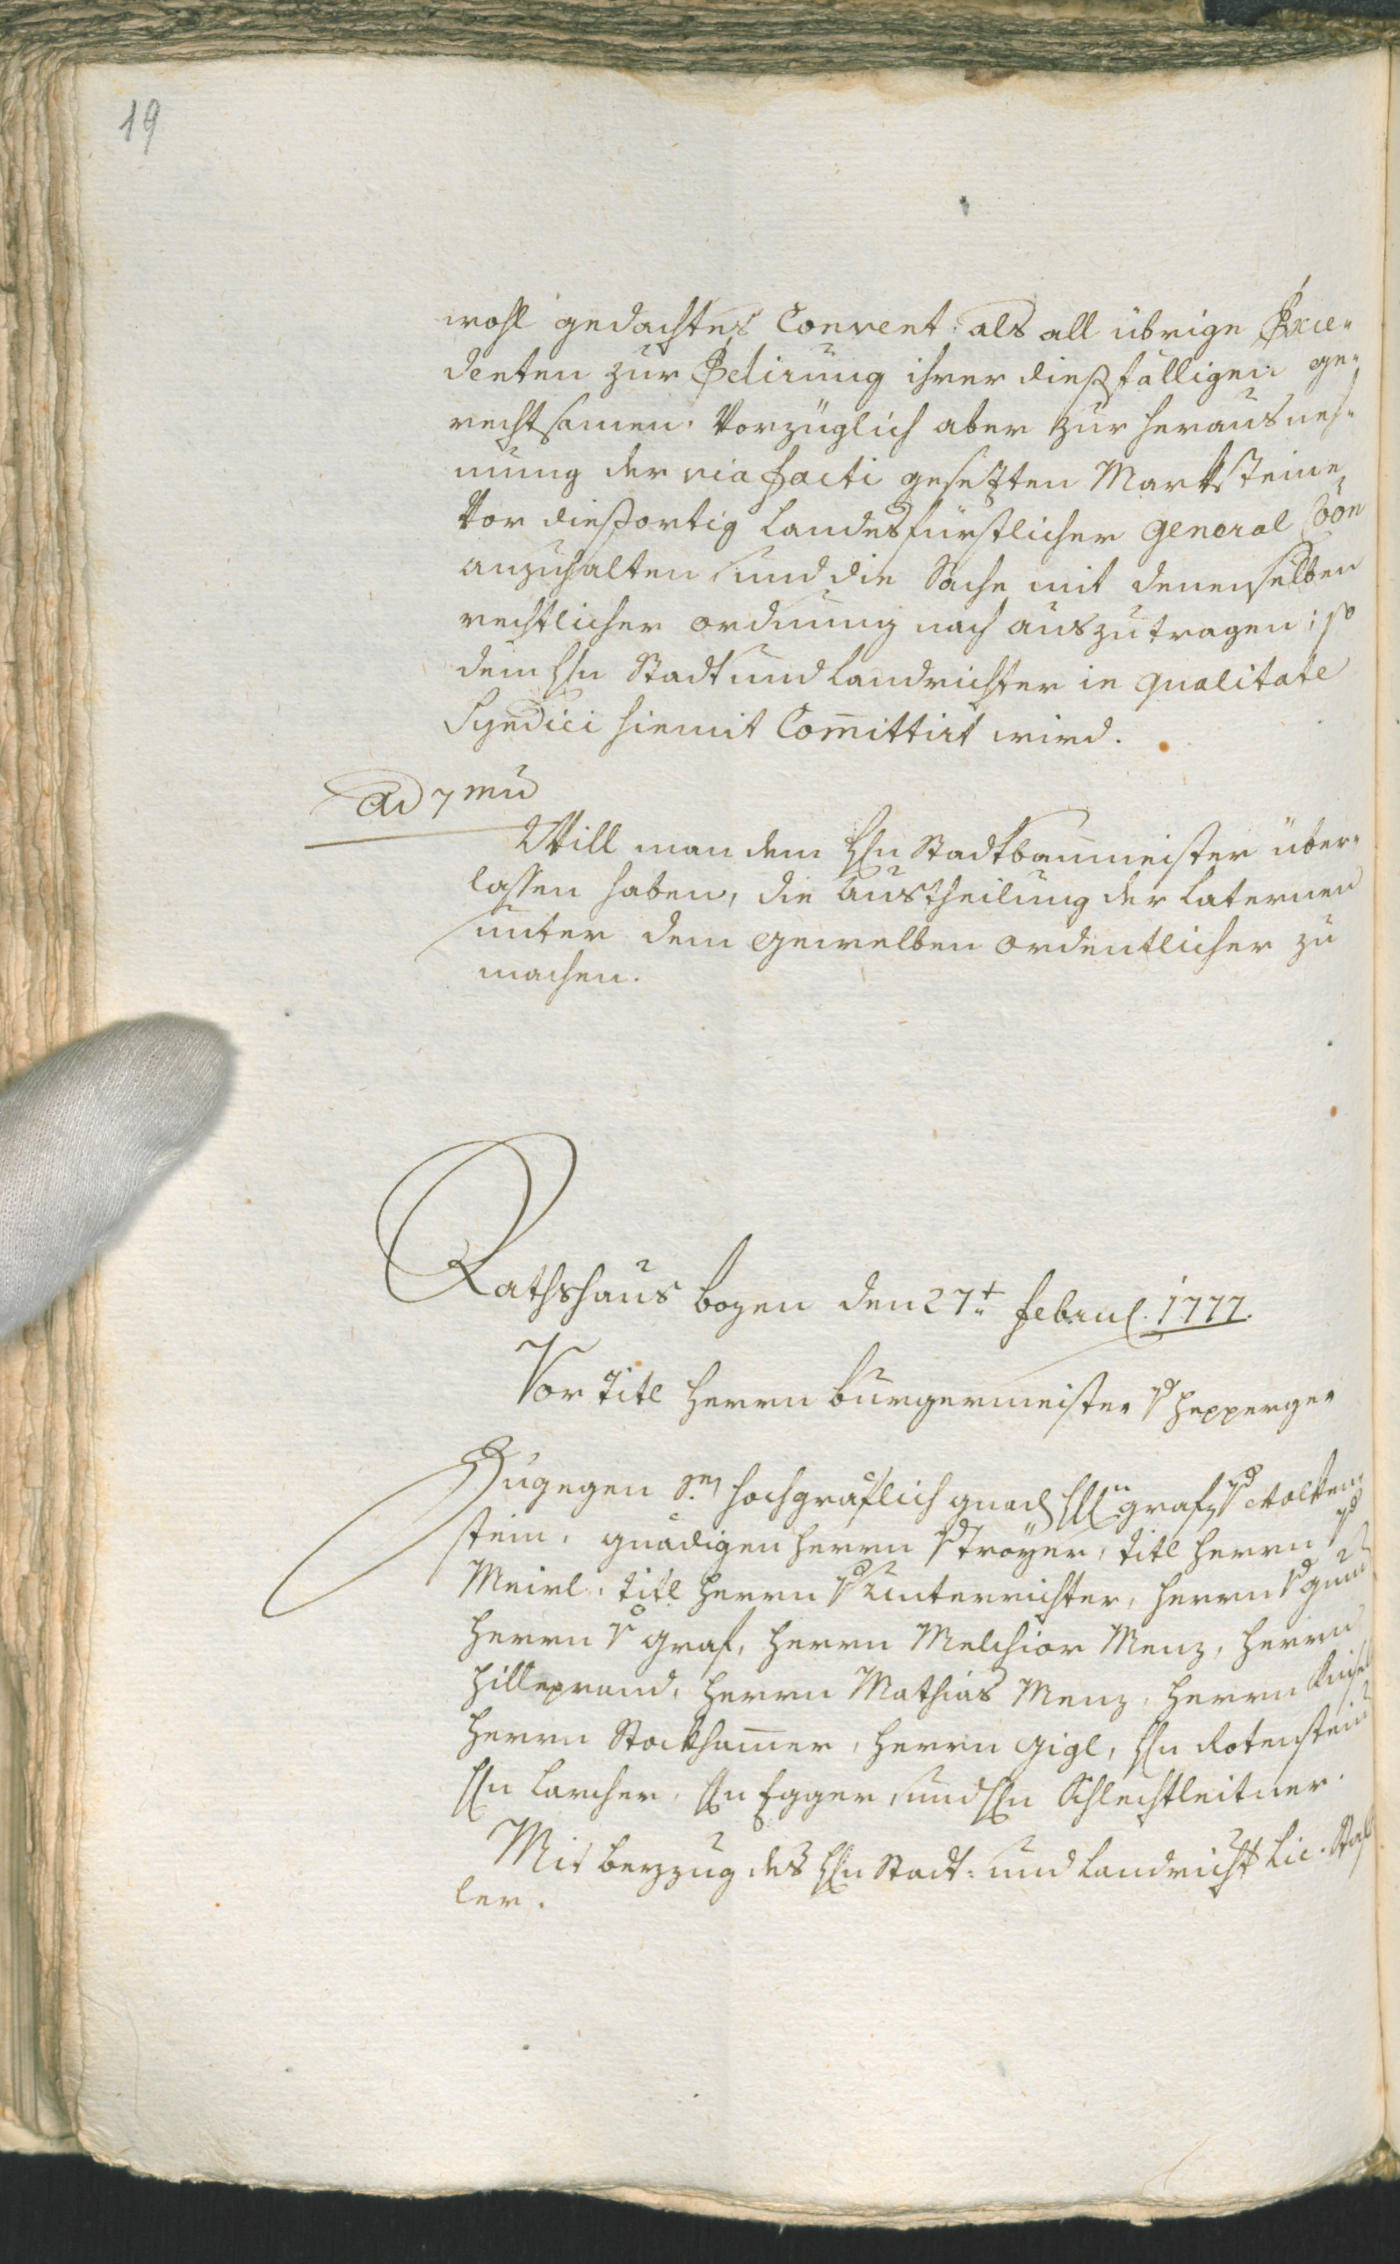 19
wohl gedachtes Convent: als all übrige Exce-
denten zur Edirung ihrer dießfälligen ge-
rechtsamen. Vorzüglich aber zur herausneh-
mung der via facti gesetzten Marksteine
Vor dießortig Landesfürstlicher General Coon
anzuhalten, und die Sache mit denenselben
rechtlicher ordnung nach auszutragen; so
dem Hn Stadt und Landrichter in qualitate
Syndici hiemit Com̄ittirt wird.
Ad 7mū
Will man dem Hn Stadtbaumeister über-
lassen haben, die Austheilung der Laternen
unter dem Gewelben ordentlicher zu
machen.
Rathshaus bozen den 27t Febru. 1777.
Vor Titl Herrn Burgermeister v Hepperger
Zugegen Sr hochgräflich gnad Hn Grafn v Wolken-
stein, gnädigen Herrn v Troÿer, titl Herrn v
Meirl, titl Herrn v Unterrichter, Herrn v
Herrn v Graf, Herrn Melchior Menz, Herrn
Hilleprand, Herrn Mathias Menz, Herrn
Herrn Stockham̄er, Herrn Gigl, Hn Rotenstein
Hn Larcher, Hn Egger, und Hn Schlechtleitner.
Mit beyzug des Hn Stadt- und Landricht Lic. Staf
ler.